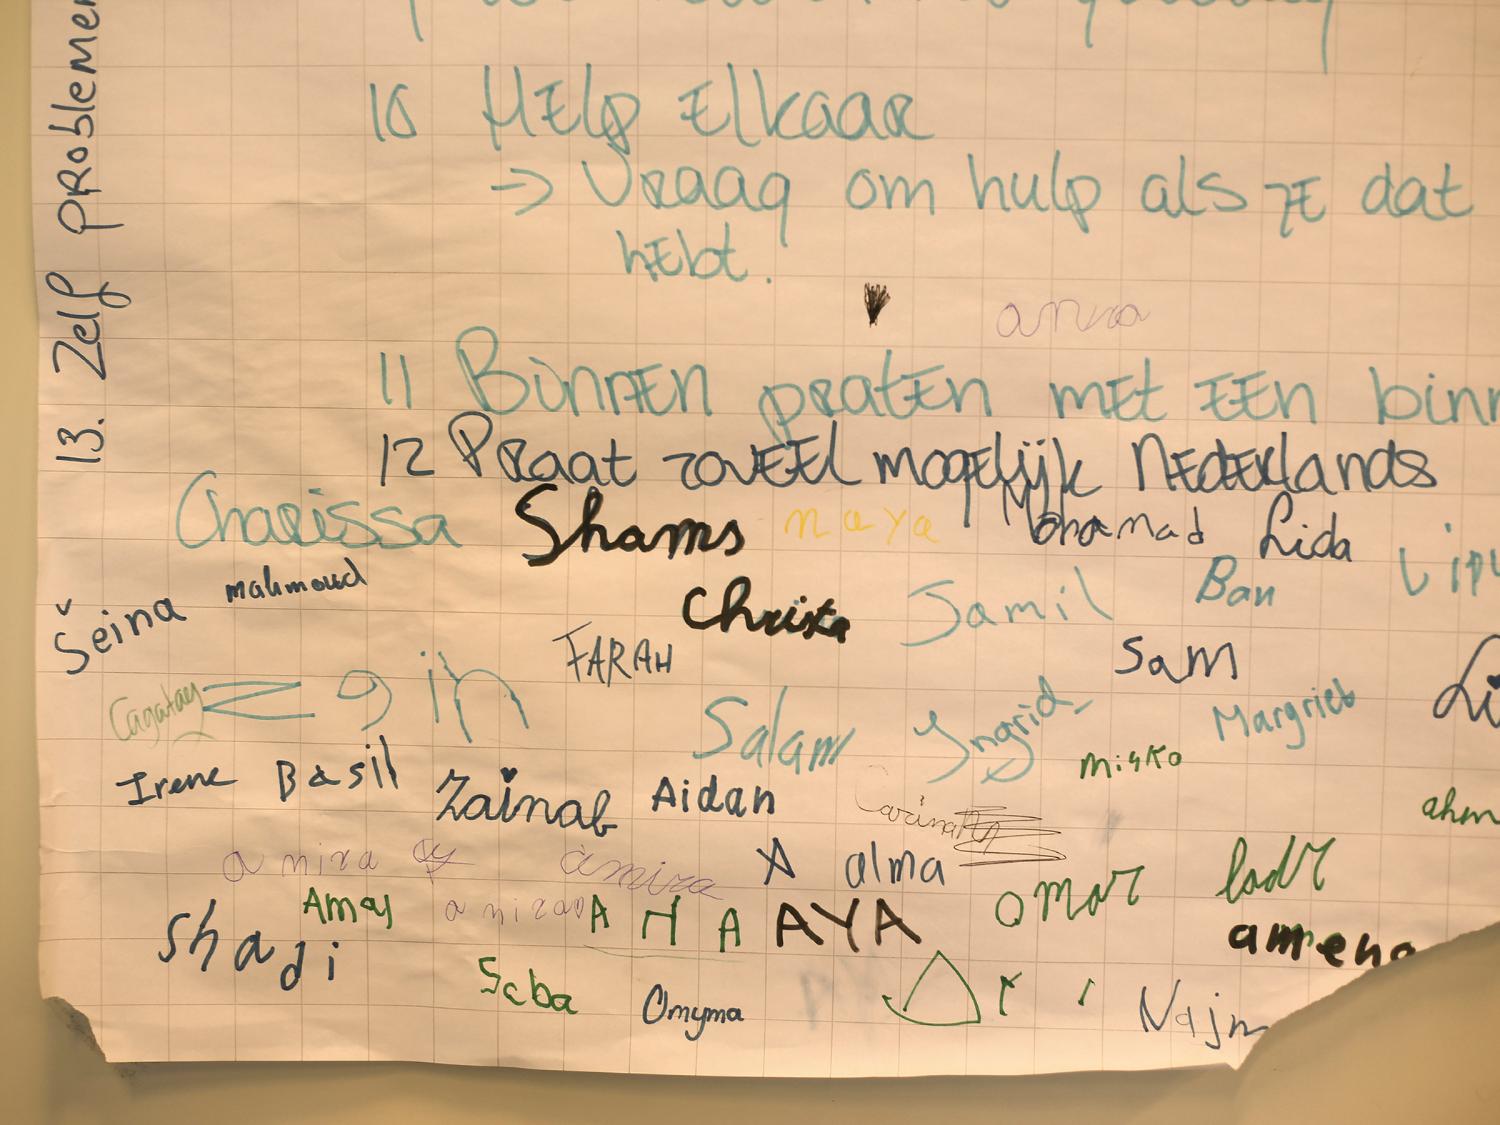 10 Help Elkaar
→ Vraag om hulp als je dat
hebt.
anna
11 Binnen praten met een binn
12 Praat zoveel mogelijk Nederlands
13. Zelf probleme
Charissa Shams naya Mohamad Lida
Šeina mahmoud Christa Samil Ban
FARAH Sam
Cagatay Salam Ingrid Margriet
Irene Basil Zainab Aidan Carina Misko
ahm
amira amira alma omar
Shadi Amay amira AHA AYA amena
Saba Omyma Najm